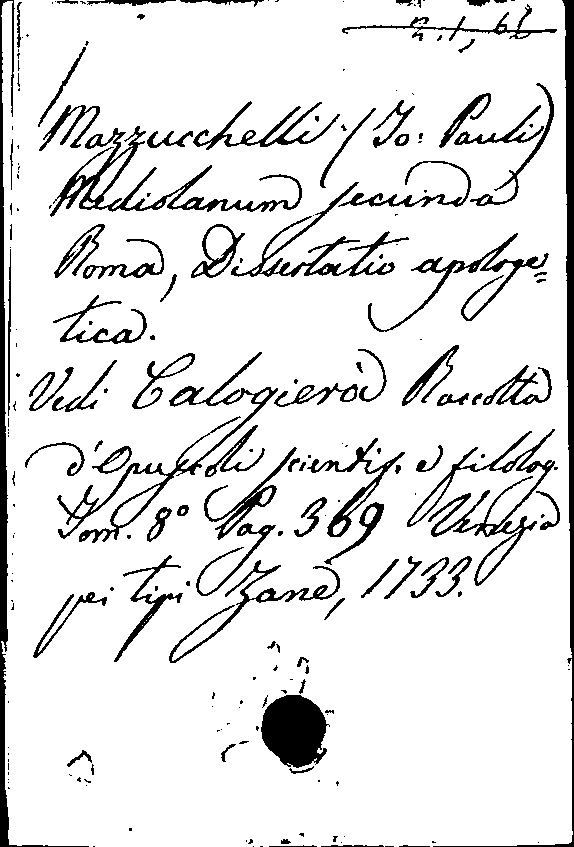 Mazzucchelli (Jo: Pauli)
Mediolanum secunda
Roma, Dissertatio apologe=
tica.
Vedi Calogierà Raccolta
d'Opuscoli scientif. e filolog.
Tom. 8° Pag. 369 Venezia
pei tipi Zane, 1733.